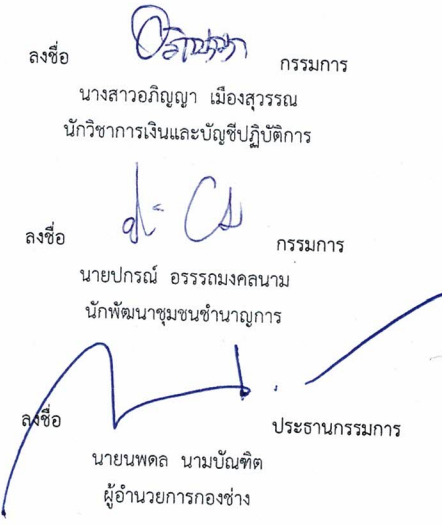 ลงชื่อ อภิญญา กรรมการ
นางสาวอภิญญา เมืองสุวรรณ
นักวิชาการเงินและบัญชีปฏิบัติการ
ลงชื่อ กรรมการ
นายปกรณ์ อรรรถมงคลนาม
นักพัฒนาชุมชนชำนาญการ
ลงชื่อ ประธานกรรมการ
นายนพดล นามบัณฑิต
ผู้อำนวยการกองช่าง